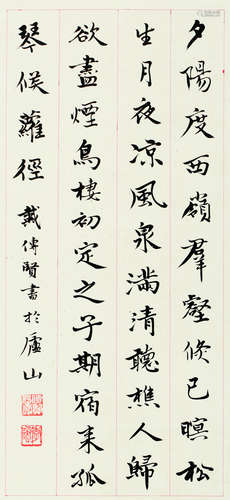 夕陽度西嶺群壑倏已暝松
生月夜涼風泉滿清聽樵人歸
欲盡煙鳥棲初定之子期宿来孤
琴候蘿徑 戴傅賢書於廬山